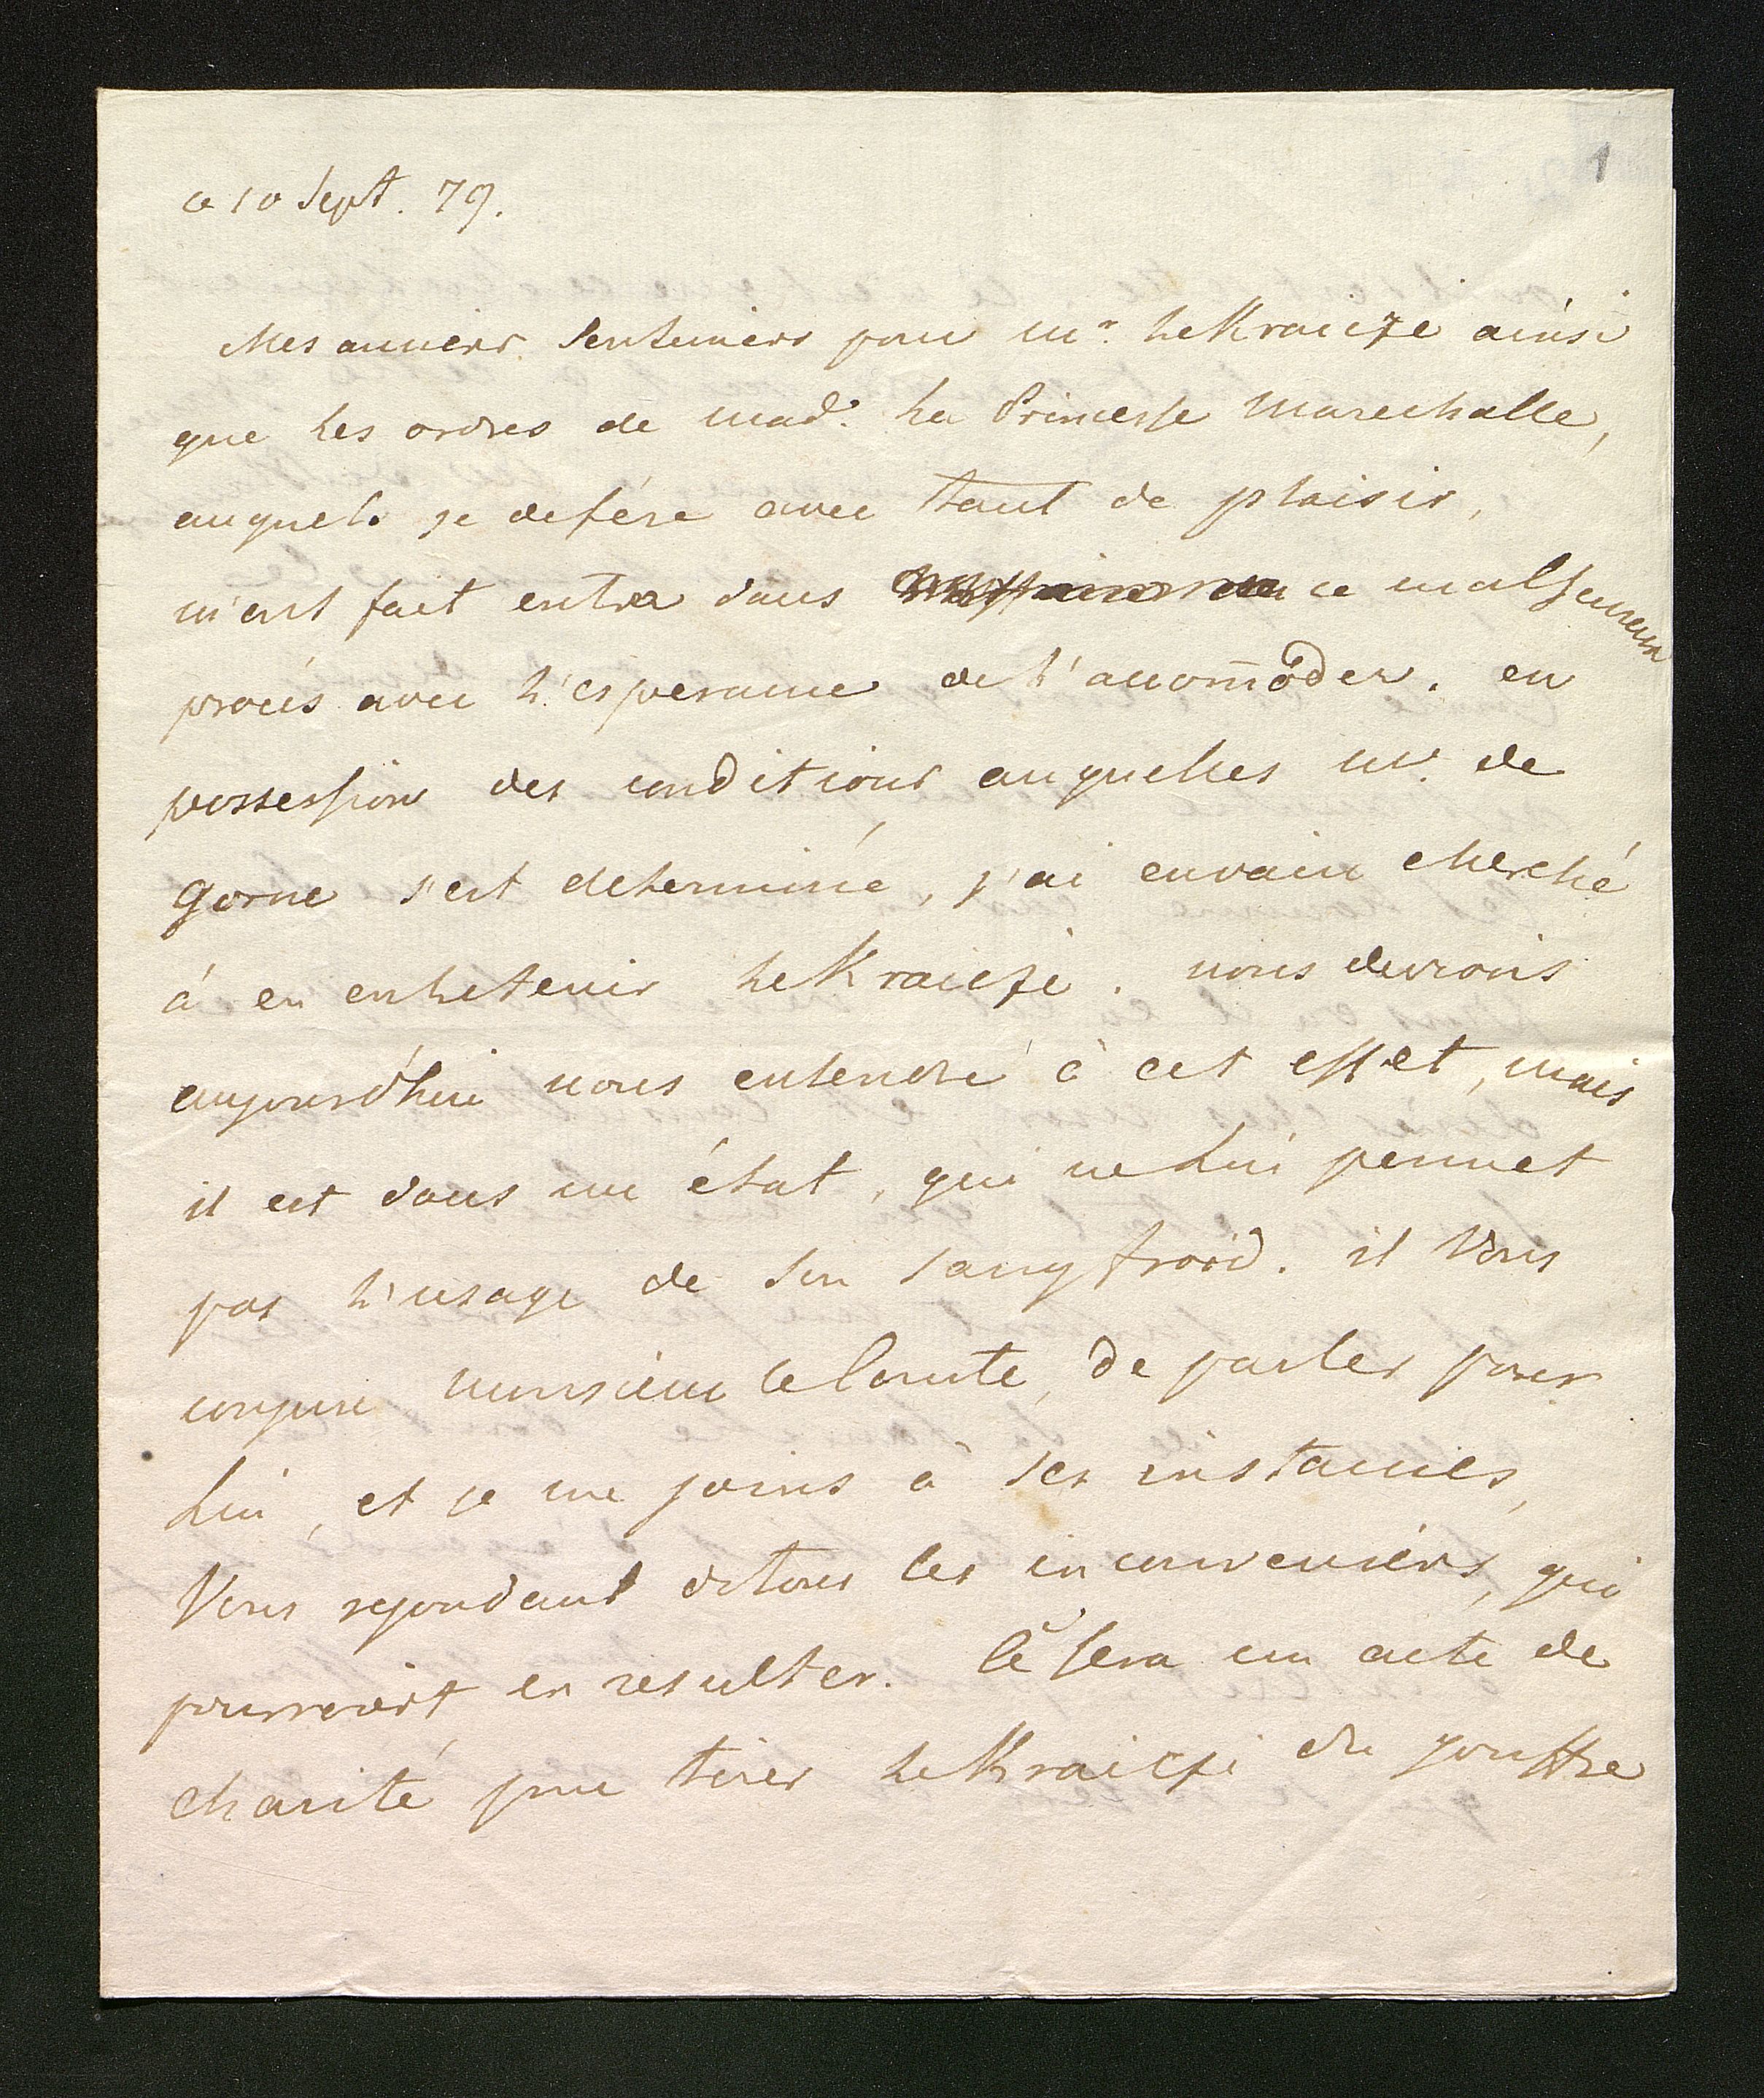 1
ce 10 Sept. 79.
Mes anciens sentimens pour Mr. le Kraicze ainsi
que les ordres de mad. la Princesse Marechalle,
auquels je defére avec tant de plaisir,
m'ont fait entrer dans ce malheureux
procés avec l'esperance de l'accom̄oder. en
possession des conditions auquelles Mr. de
Gorne s'est determiné, j'ai envain cherché
á en entretenir le Kraiczi. nous devrions
aujourd'hui nous entendre á cet effet, mais
il est dans un état, qui ne lui permet
pas l'usage de son sangfroid. il Vous
conjure Monsieur le Comte, de parler pour
lui, et je me joins á ses instances,
Vous repondant de tous les inconveniens, qui
pourroient en resulter. Ce sera un acte de
charité pour tirer le Kraiczi du gouffre